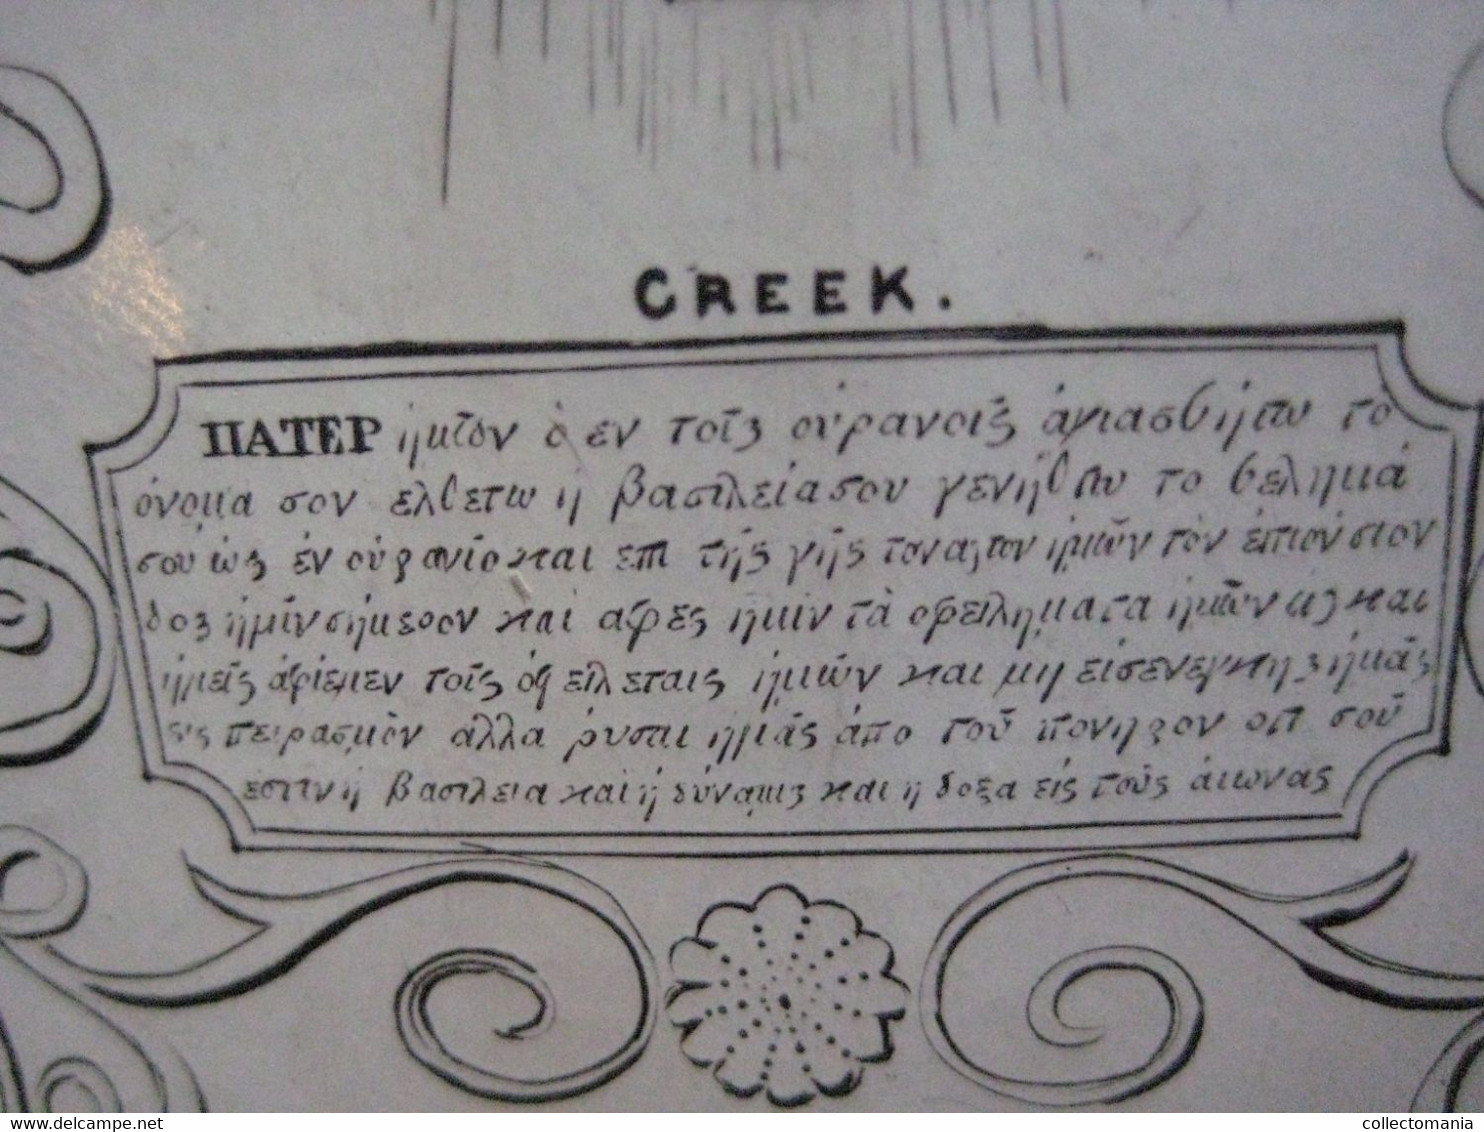 GREEK.
ΠΑΤΕΡ ἡμῖον ὁ εν τοῖς οὐρανοῖς ἁγιασθήτω το
ὀνομα σον ελθετω ἡ βασιλείασου γενήθτω το θελημά
σου ὡς ἐν οὐρανίο και επι τῆς γῆς τοναρτον ἡμῶν τὸν ἐπιούσιον
δος ἡμῖν σήμερον και αφες ἡμιν τὰ οφειληματα ἡμῶν ὡς και
ἡμεῖς ἀφίεμεν τοῖς ὀφειλεταις ἡμῶν και μη εἰσενεγκης ἡμᾶς
εις πειρασμὸν ἀλλα ῥυσαι ἡμᾶς ἀπο τοῦ πονηρον οτι σοῦ
εστιν ἡ βασιλεια και ἡ δύναμις και η δοξα εἰς τοῦς ἀιωνας
collectomania
www.delcampe.net